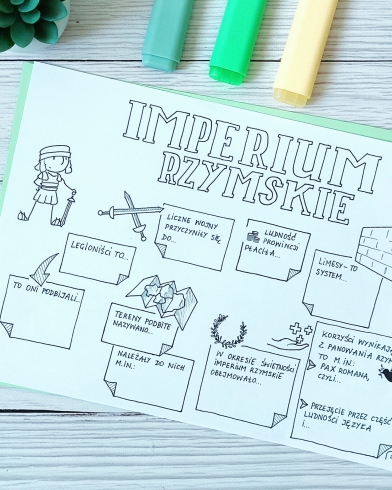 IMPERIUM
RZYMSKIE
LICZNE WOJNY
PRZYCZYNIŁY SIĘ
DO...
LUDNOŚĆ
PROWINCJI
PŁACIŁA...
LEGIONIŚCI TO...
LIMESY - TO
SYSTEM...
TO ONI PODBIJALI...
TERENY PODBITE
NAZYWANO...
NALEŻAŁY DO NICH
M.IN.:
W OKRESIE ŚWIETNOŚCI
IMPERIUM RZYMSKIE
OBEJMOWAŁO...
KORZYŚCI WYNIKAJ
Z PANOWANIA RZYM
TO M.IN:
PAX ROMANA,
CZYLI...
PRZEJĘCIE PRZEZ CZĘŚĆ
LUDNOŚCI JĘZYKA
I...